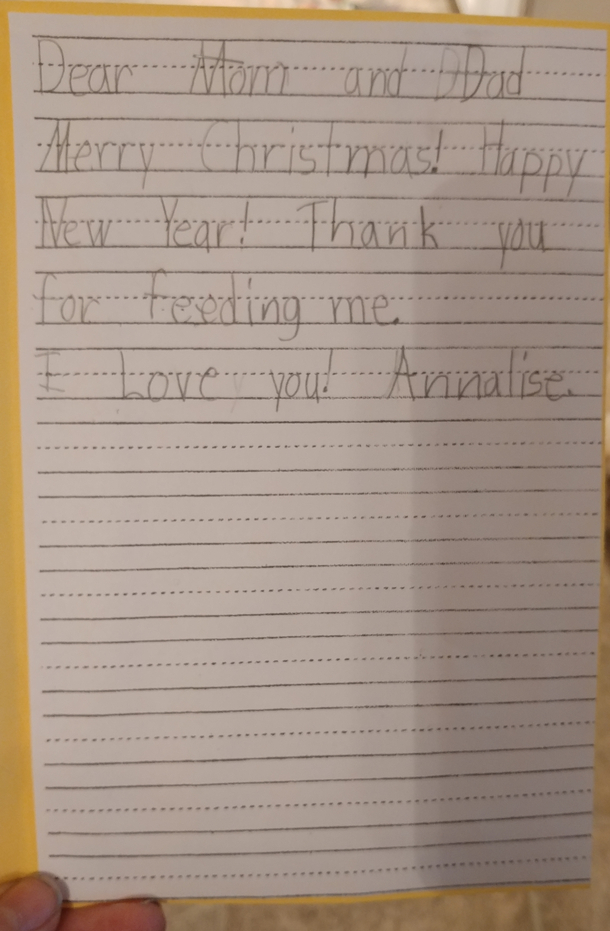 Dear Mom and Dad
Merry Christmas! Happy
New Year! Thank you
for feeding me.
I Love you! Annalise.